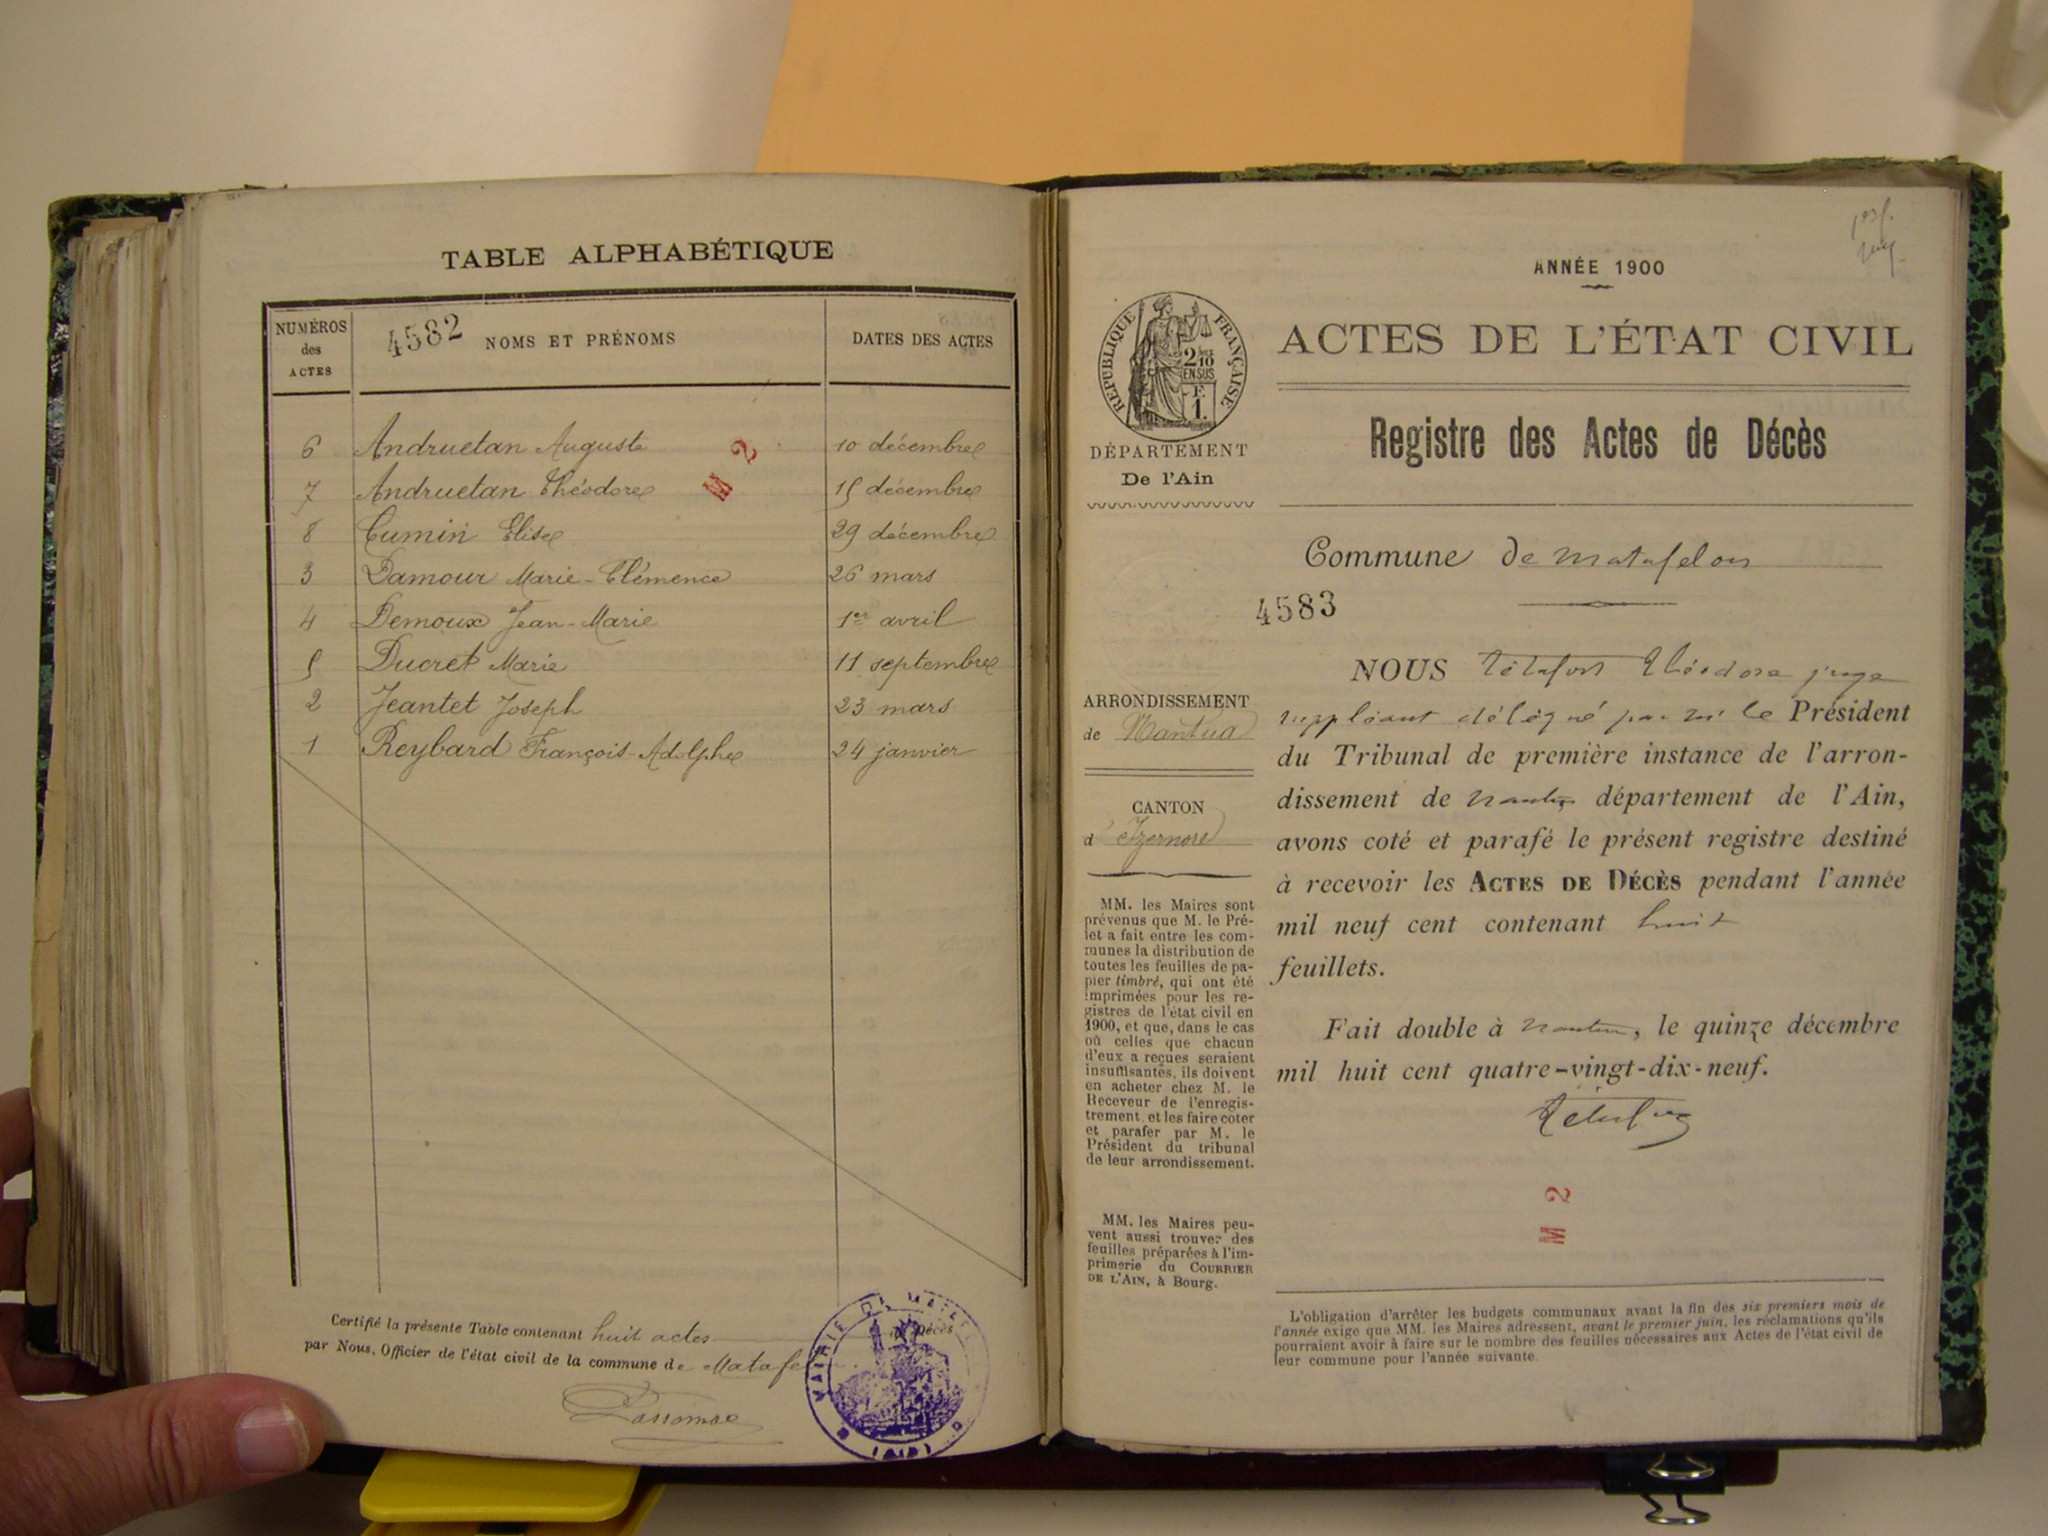 TABLE ALPHABÉTIQUE
NUMÉROS des ACTES
4582
NOMS ET PRÉNOMS
DATES DES ACTES
6 Andruetan Auguste 10 décembre
7 Andruetan Théodore 15 décembre
8 Cumin Elise 29 décembre
3 Damour Marie-Clémence 26 mars
4 Demoux Jean-Marie 1er avril
5 Ducret Marie 11 septembre
2 Jeantet Joseph 23 mars
1 Reybard François-Adolphe 24 janvier
M 2
Certifié la présente Table contenant huit actes de Décès
par Nous, Officier de l'état civil de la commune de Matafe
MAIRIE DE MATAFE
(AIN)
ANNÉE 1900
RÉPUBLIQUE FRANÇAISE
2/10
EN SUS
F.
1.
ACTES DE L'ÉTAT CIVIL
DÉPARTEMENT
De l'Ain
Registre des Actes de Décès
Commune de Matafelon
4583
ARRONDISSEMENT
de Nantua
CANTON
d'Izernore
MM. les Maires sont
prévenus que M. le Pré-
fet a fait entre les com-
munes la distribution de
toutes les feuilles de pa-
pier timbré, qui ont été
imprimées pour les re-
gistres de l'état civil en
1900, et que, dans le cas
où celles que chacun
d'eux a reçues seraient
insuffisantes, ils doivent
en acheter chez M. le
Receveur de l'enregis-
trement et les faire coter
et parafer par M. le
Président du tribunal
de leur arrondissement.
MM. les Maires peu-
vent aussi trouver des
feuilles préparées à l'im-
primerie du COURRIER
DE L'AIN, à Bourg.
NOUS Théodore juge
suppléant délégué par Mr le Président
du Tribunal de première instance de l'arron-
dissement de Nantua département de l'Ain,
avons coté et parafé le présent registre destiné
à recevoir les ACTES DE DÉCÈS pendant l'année
mil neuf cent contenant huit
feuillets.
Fait double à Nantua, le quinze décembre
mil huit cent quatre-vingt-dix-neuf.
M 2
L'obligation d'arrêter les budgets communaux avant la fin des six premiers mois de
l'année exige que MM. les Maires adressent, avant le premier juin, les réclamations qu'ils
pourraient avoir à faire sur le nombre des feuilles nécessaires aux Actes de l'état civil de
leur commune pour l'année suivante.